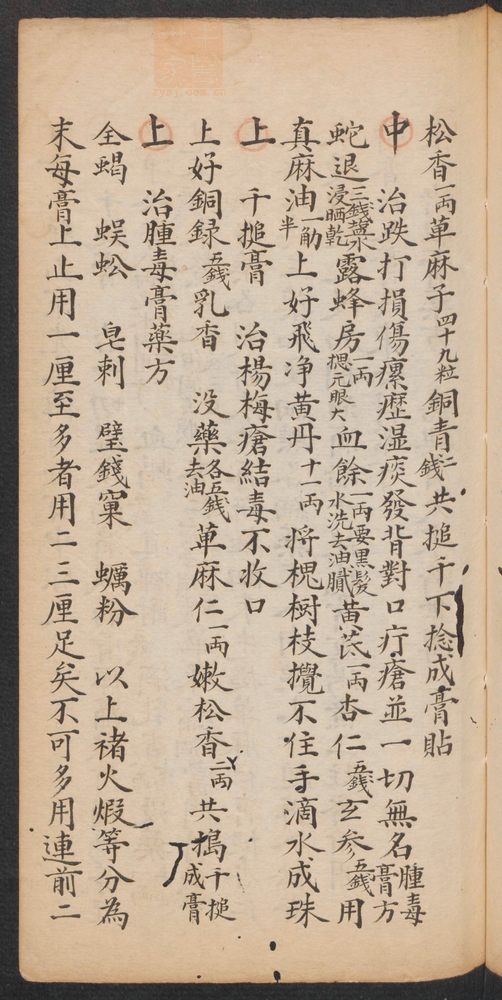 松香一兩草麻子四十九粒銅青二錢共搥千下捻成膏貼
中 治跌打損傷瘰癧湿痰發背對口疔瘡並一切無名腫毒膏方
蛇退三錢盐水浸晒乾露蜂房一兩揌元眼大血餘一兩要黒髪水洗去油膩黃芪一兩杏仁五錢玄参五錢用
真麻油一觔半上好飛净黄丹十一兩將槐樹枝攪不住手滴水成珠
上 千搥膏 治楊梅瘡結毒不收口
上好銅録五錢乳香 没藥各五錢去油草麻仁一兩嫩松香二兩共搗千搥成膏
上 治腫毒膏藥方
全蝎 蜈蚣 皂刺 璧錢窠 蠣粉 以上褚火煅等分為
末每膏上止用一厘至多者用二三厘足矣不可多用連前二